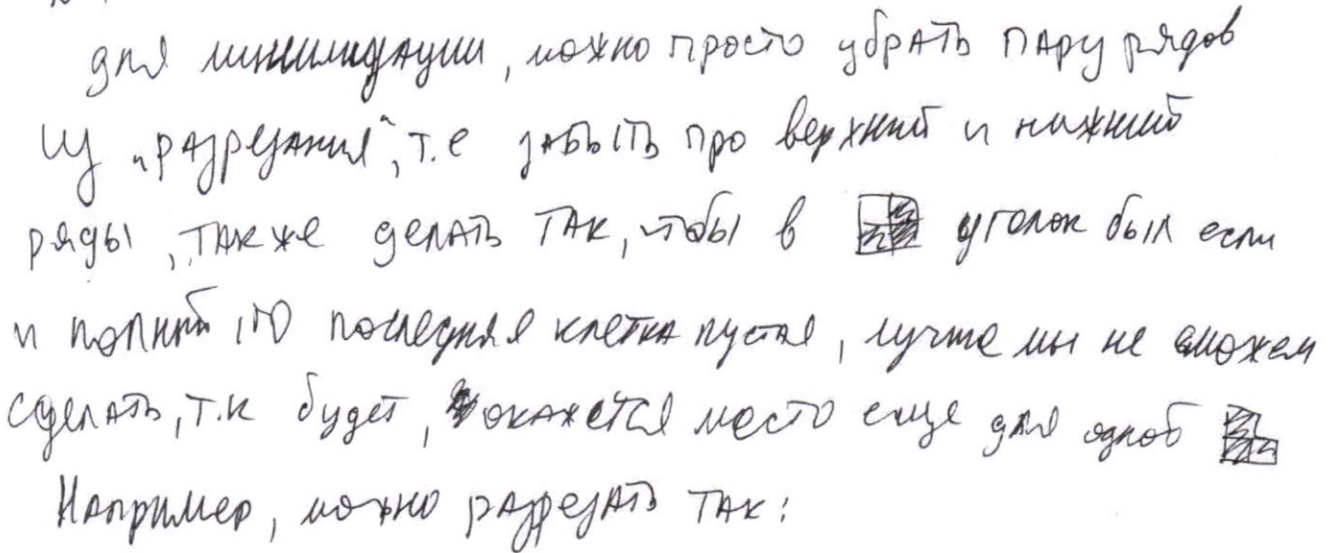 для минимизации, можно просто убрать пару рядов
из "разрезания", т.е забыть про верхний и нижний
ряды, также делать так, чтобы в уголок был если
и полный то последняя клетка пустая, лучше мы не сможем
сделать, т.к будет, окажется место еще для одной
Например, можно разрезать так: